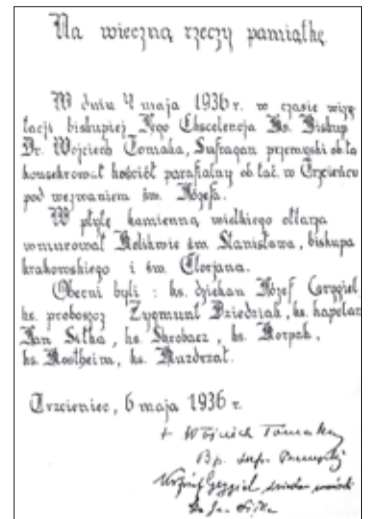 Na wieczną rzeczy pamiątkę
W dniu 4 maja 1936 r. w czasie wizy-
tacji biskupiej Jego Ekscelencja Ks. Biskup
Dr. Wojciech Tomaka, Sufragan przemyski ob. łac.
konsekrował kościół parafialny ob. łac. w Trzcieńcu
pod wezwaniem św. Józefa.
W płytę kamienną wielkiego ołtarza
wmurował Relikwie św. Stanisława, biskupa
krakowskiego i św. Florjana.
Obecni byli : ks. dziekan Józef
ks. proboszcz Zygmunt Dziedziak, ks. kapelan
Jan Sitka, ks. Skrobacz, ks. Korpak,
ks. Kostheim, ks.
Trzcieniec, 6 maja 1936 r.
+ Wojciech Tomaka
Bp. sufr.